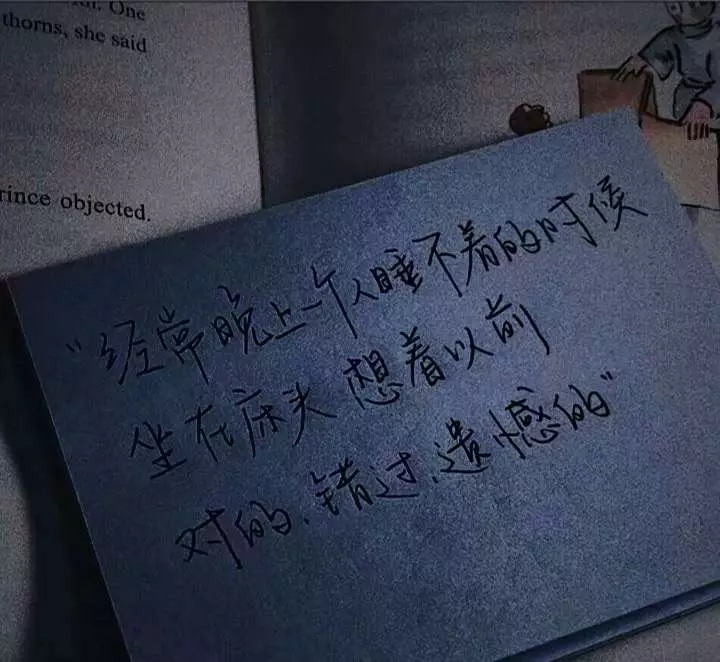 One
thorns, she said
rince objected.
"经常晚上一个人睡不着的时候
坐在床头 想着以前
对的、错过、遗憾的"